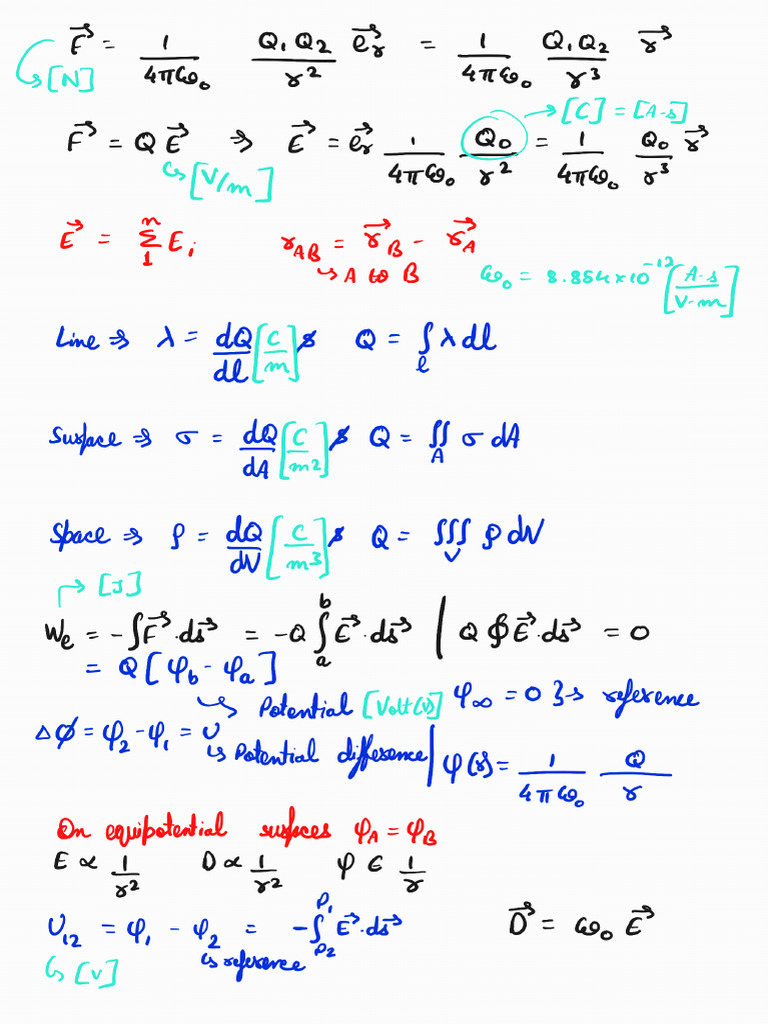 F⃗ = 1/(4πε₀) Q₁Q₂/r² e⃗r = 1/(4πε₀) Q₁Q₂/r³ r⃗
↳ [N]
→ [C] = [A·s]
F⃗ = Q E⃗ ⇒ E⃗ = e⃗r 1/(4πε₀) Q₀/r² = 1/(4πε₀) Q₀/r³ r⃗
↳ [V/m]
E⃗ = Σ₁ⁿ Eᵢ r_AB = r⃗_B - r⃗_A
↳ A to B ε₀ = 8.854×10⁻¹² [A·s/V·m]
Line ⇒ λ = dQ/dl [C/m] & Q = ∫_l λ dl
Surface ⇒ σ = dQ/dA [C/m²] & Q = ∬_A σ dA
Space ⇒ ρ = dQ/dV [C/m³] & Q = ∭_V ρ dV
→ [J]
We = -∫F⃗·ds⃗ = -Q ∫_a^b E⃗·ds⃗ | Q ∮E⃗·ds⃗ = 0
= Q[φ_b - φ_a]
↳ Potential [Volt(s)] φ∞ = 0 }→ reference
Δφ = φ₂ - φ₁ = U
↳ Potential difference | φ(r) = 1/(4πε₀) Q/r
On equipotential surfaces φ_A = φ_B
E ∝ 1/r² D ∝ 1/r² φ ∈ 1/r
U₁₂ = φ₁ - φ₂ = -∫_P₂^P₁ E⃗·ds⃗ D⃗ = ε₀ E⃗
↳ reference
↳ [V]